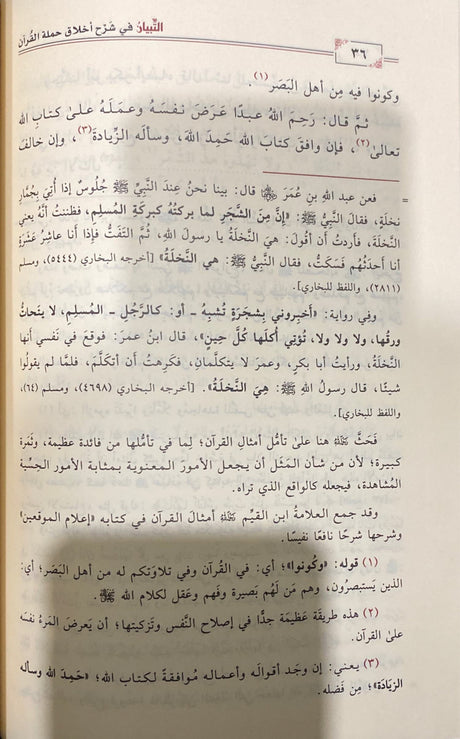 التِّبيانُ في شَرْح أخلاق حملة القُرآن
٣٦
وكونوا فيه مِن أهل البَصَر (١).
ثمَّ قال: رَحِمَ اللهُ عبدًا عَرَضَ نَفسَهُ وعمَلَهُ علىٰ كتابِ الله
تعالىٰ(٢)، فإن وافقَ كتابَ الله حَمِدَ اللهَ، وسألَه الزِّيادةَ(٣)، وإن خالفَ
= فعن عبد الله بنِ عُمَرَ ﵄ قال: بينا نحنُ عِندَ النَّبيِّ ﷺ جُلُوسٌ إذا أُتِيَ بجُمَّارِ
نخلَةٍ، فقالَ النَّبيُّ ﷺ: «إنَّ مِنَ الشَّجَرِ لَمَا بركَتُهُ كبركةِ المُسلِمِ، فظننتُ أنَّهُ يعني
النَّخلَةَ، فأردتُ أن أقُولَ: هيَ النَّخلَةُ يا رسولَ اللهِ، ثُمَّ التَفَتُّ فإذا أنا عاشِرُ عَشَرَةٍ
أنا أحدَثُهُم فسَكَتُّ، فقال النَّبيُّ ﷺ: هي النَّخلَةُ» [أخرجه البخاري (٥٤٤٤)، ومسلم
(٢٨١١)، واللفظ للبخاري].
وفي رواية: «أخبِروني بشجَرَةٍ تُشبِهُ - أو: كالرَّجُلِ - المُسلِمِ، لا يتَحاتُّ
ورقُها، ولا ولا ولا، تُؤتِي أُكلَها كُلَّ حِينٍ»، قال ابنُ عمرَ: فوقعَ في نَفسِي أنها
النَّخلَةُ، ورأيتُ أبا بكرٍ، وعمرَ لا يتكلَّمانِ، فكَرِهتُ أن أتكلَّمَ، فلما لم يقولُوا
شيئًا، قال رسولُ اللهِ ﷺ: هِيَ النَّخلَةُ». [أخرجه البخاري (٤٦٩٨)، ومسلم (٦٤)،
واللفظ للبخاري].
فَحَثَّ ﵀ هنا علىٰ تأمُّل أمثالِ القرآن؛ لِما في تأمُّلها من فائدة عظيمة، وثمَرة
كبيرة؛ لأن من شأن المَثَل أن يجعل الأمورَ المعنوية بمثابة الأمور الحِسِّية
المُشاهدة، فيجعله كالواقع الذي تراه.
وقد جمع العلامةُ ابن القيِّم ﵀ أمثالَ القرآن في كتابه «إعلام الموقعين»
وشرحها شرحًا نافعًا نفيسًا.
(١) قوله: «وكُونوا»؛ أي: في القُرآن وفي تلاوَتكم له من أهل البَصَر؛ أي:
الذين يَستبصرُون، وهم مَن لَهُم بَصيرة وفَهم وعَقل لكلام الله ﷺ.
(٢) هذه طريقَة عَظيمَة جدًّا في إصلاح النَّفْس وتَزكيتها؛ أن يَعرضَ المَرءُ نفسَه
علىٰ القرآن.
(٣) يعني: إن وجَد أقوالَه وأعماله مُوافقةً لكتاب الله؛ «حَمِدَ الله وسأله
الزيادَة»؛ مِن فَضله.